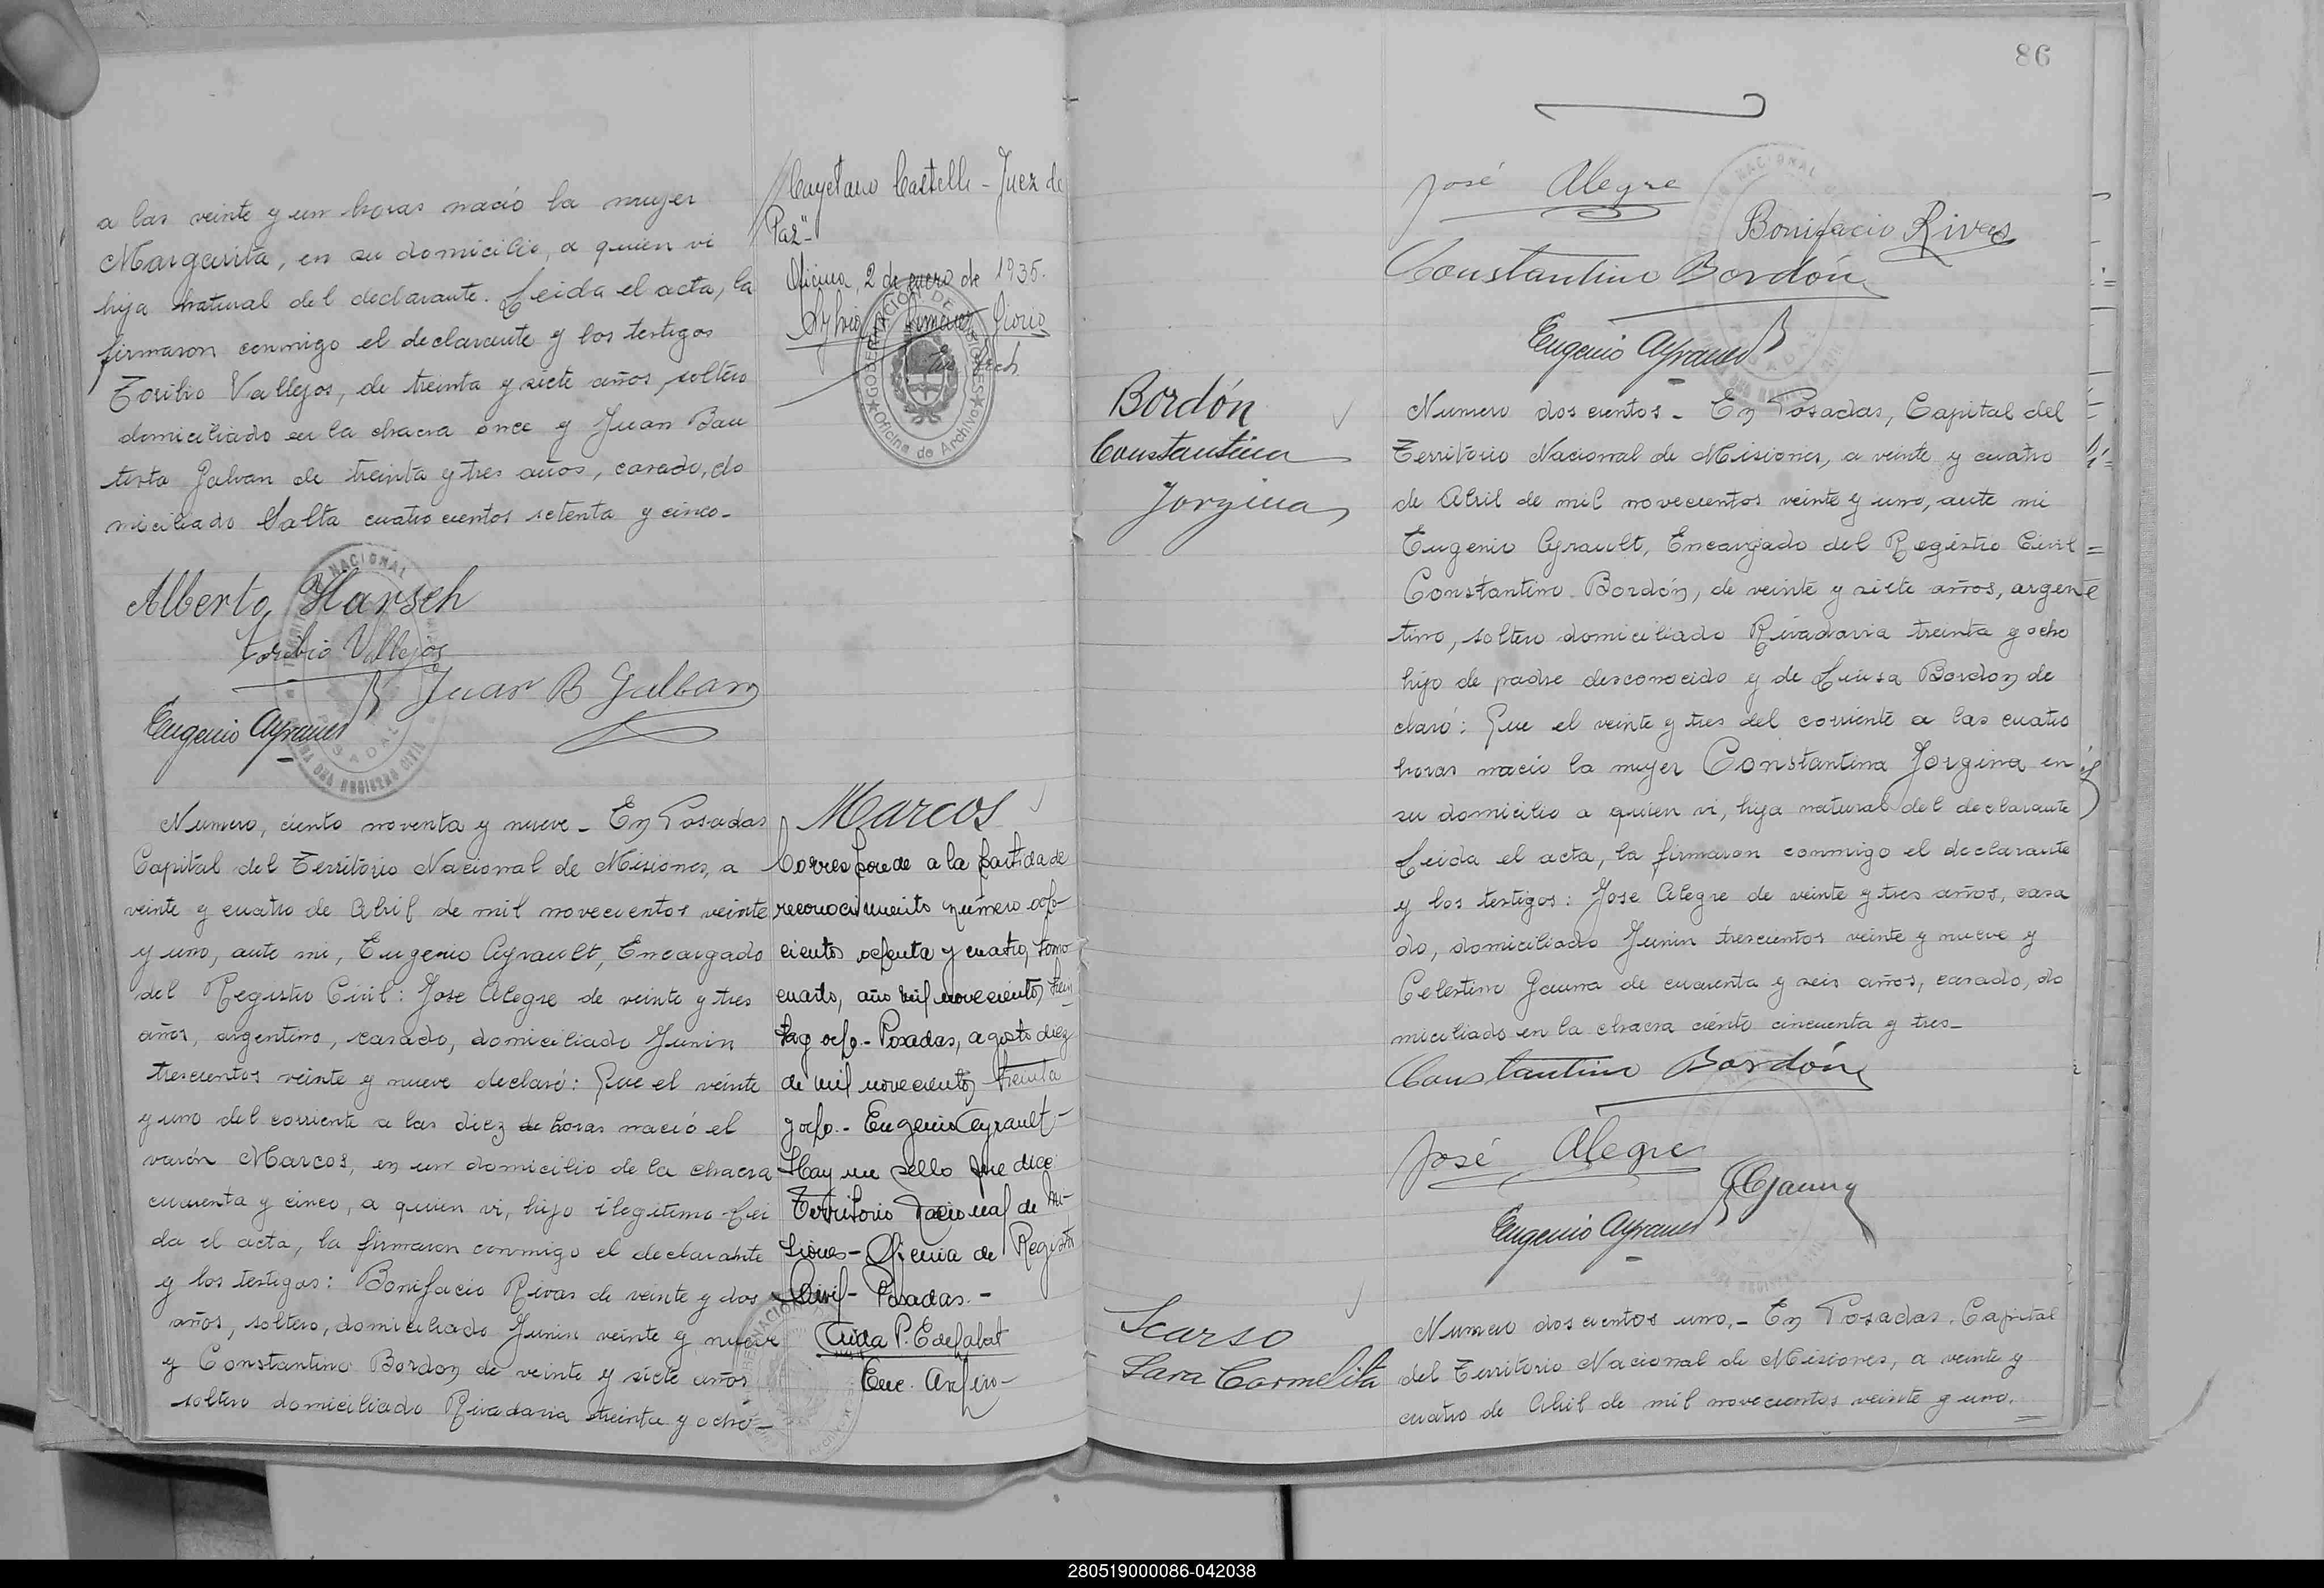 a las veinte y un horas nació la mujer
Margarita, en su domicilio, a quien vi
hija natural del declarante. Leida el acta, la
firmaron conmigo el declarante y los testigos
Toribio Vallejos, de treinta y siete años, soltero
domiciliado en la chacra once y Juan Bau
tista Galvan de treinta y tres años, casado, do
miciliado Salta cuatrocientos setenta y cinco-
Alberto Harsch
Toribio Vallejos
Juan B Galban
Eugenio Ayrault
Numero, ciento noventa y nueve - En Posadas
Capital del Territorio Nacional de Misiones, a
veinte y cuatro de Abril de mil novecientos veinte
y uno, ante mi, Eugenio Ayrault, Encargado
del Registro Civil: Jose Alegre de veinte y tres
años, argentino, casado, domiciliado Junin
trescientos veinte y nueve declaró: Que el veinte
y uno del corriente a las diez de horas nació el
varón Marcos, en un domicilio de la chacra
cuarenta y cinco, a quien vi, hijo ilegitimo. Lei
da el acta, la firmaron conmigo el declarante
y los testigos: Bonifacio Rivas de veinte y dos
años, soltero, domiciliado Junin veinte y nueve
y Constantino Bordon de veinte y siete años
soltero domiciliado Rivadavia treinta y ocho-
Cayetano Castelli - Juez de
Paz"-
Oficina, 2 de enero de 1935.
GOBERNACIÓN DE MISIONES
Oficina de Archivo
Marcos
Corresponde a la partida de
reconocimiento número ocho-
cientos ochenta y cuatro, tomo
cuarto, año mil novecientos trein
ta y ocho.- Posadas, agosto diez
de mil novecientos treinta
y ocho.- Eugenio Ayrault-
Hay un sello que dice
Territorio Nacional de Mi-
siones - Oficina de Registro
Civil - Posadas.-
Enc. Archivo-
86
José Alegre
Bonifacio Rivas
Constantino Bordón
Eugenio Ayrault
Bordón
Constantina
Jorgina
Numero doscientos - En Posadas, Capital del
Territorio Nacional de Misiones, a veinte y cuatro
de Abril de mil novecientos veinte y uno, ante mi
Eugenio Ayrault, Encargado del Registro Civil =
Constantino Bordón, de veinte y siete años, argen
tino, soltero domiciliado Rivadavia treinta y ocho
hijo de padre desconocido y de Luisa Bordon de
claró: Que el veinte y tres del corriente a las cuatro
horas nació la mujer Constantina Jorgina en
su domicilio a quien vi, hija natural del declarante
Leida el acta, la firmaron conmigo el declarante
y los testigos: Jose Alegre de veinte y tres años, casa
do, domiciliado Junin trescientos veinte y nueve y
Celestino Gauna de cuarenta y seis años, casado, do
miciliado en la chacra ciento cincuenta y tres-
Constantino Bordón
José Alegre
CGauna
Eugenio Ayrault
Scarso
Sara Carmelita
Numero doscientos uno.- En Posadas. Capital
del Territorio Nacional de Misiones, a veinte y
cuatro de Abril de mil novecientos veinte y uno.
280519000086-042038